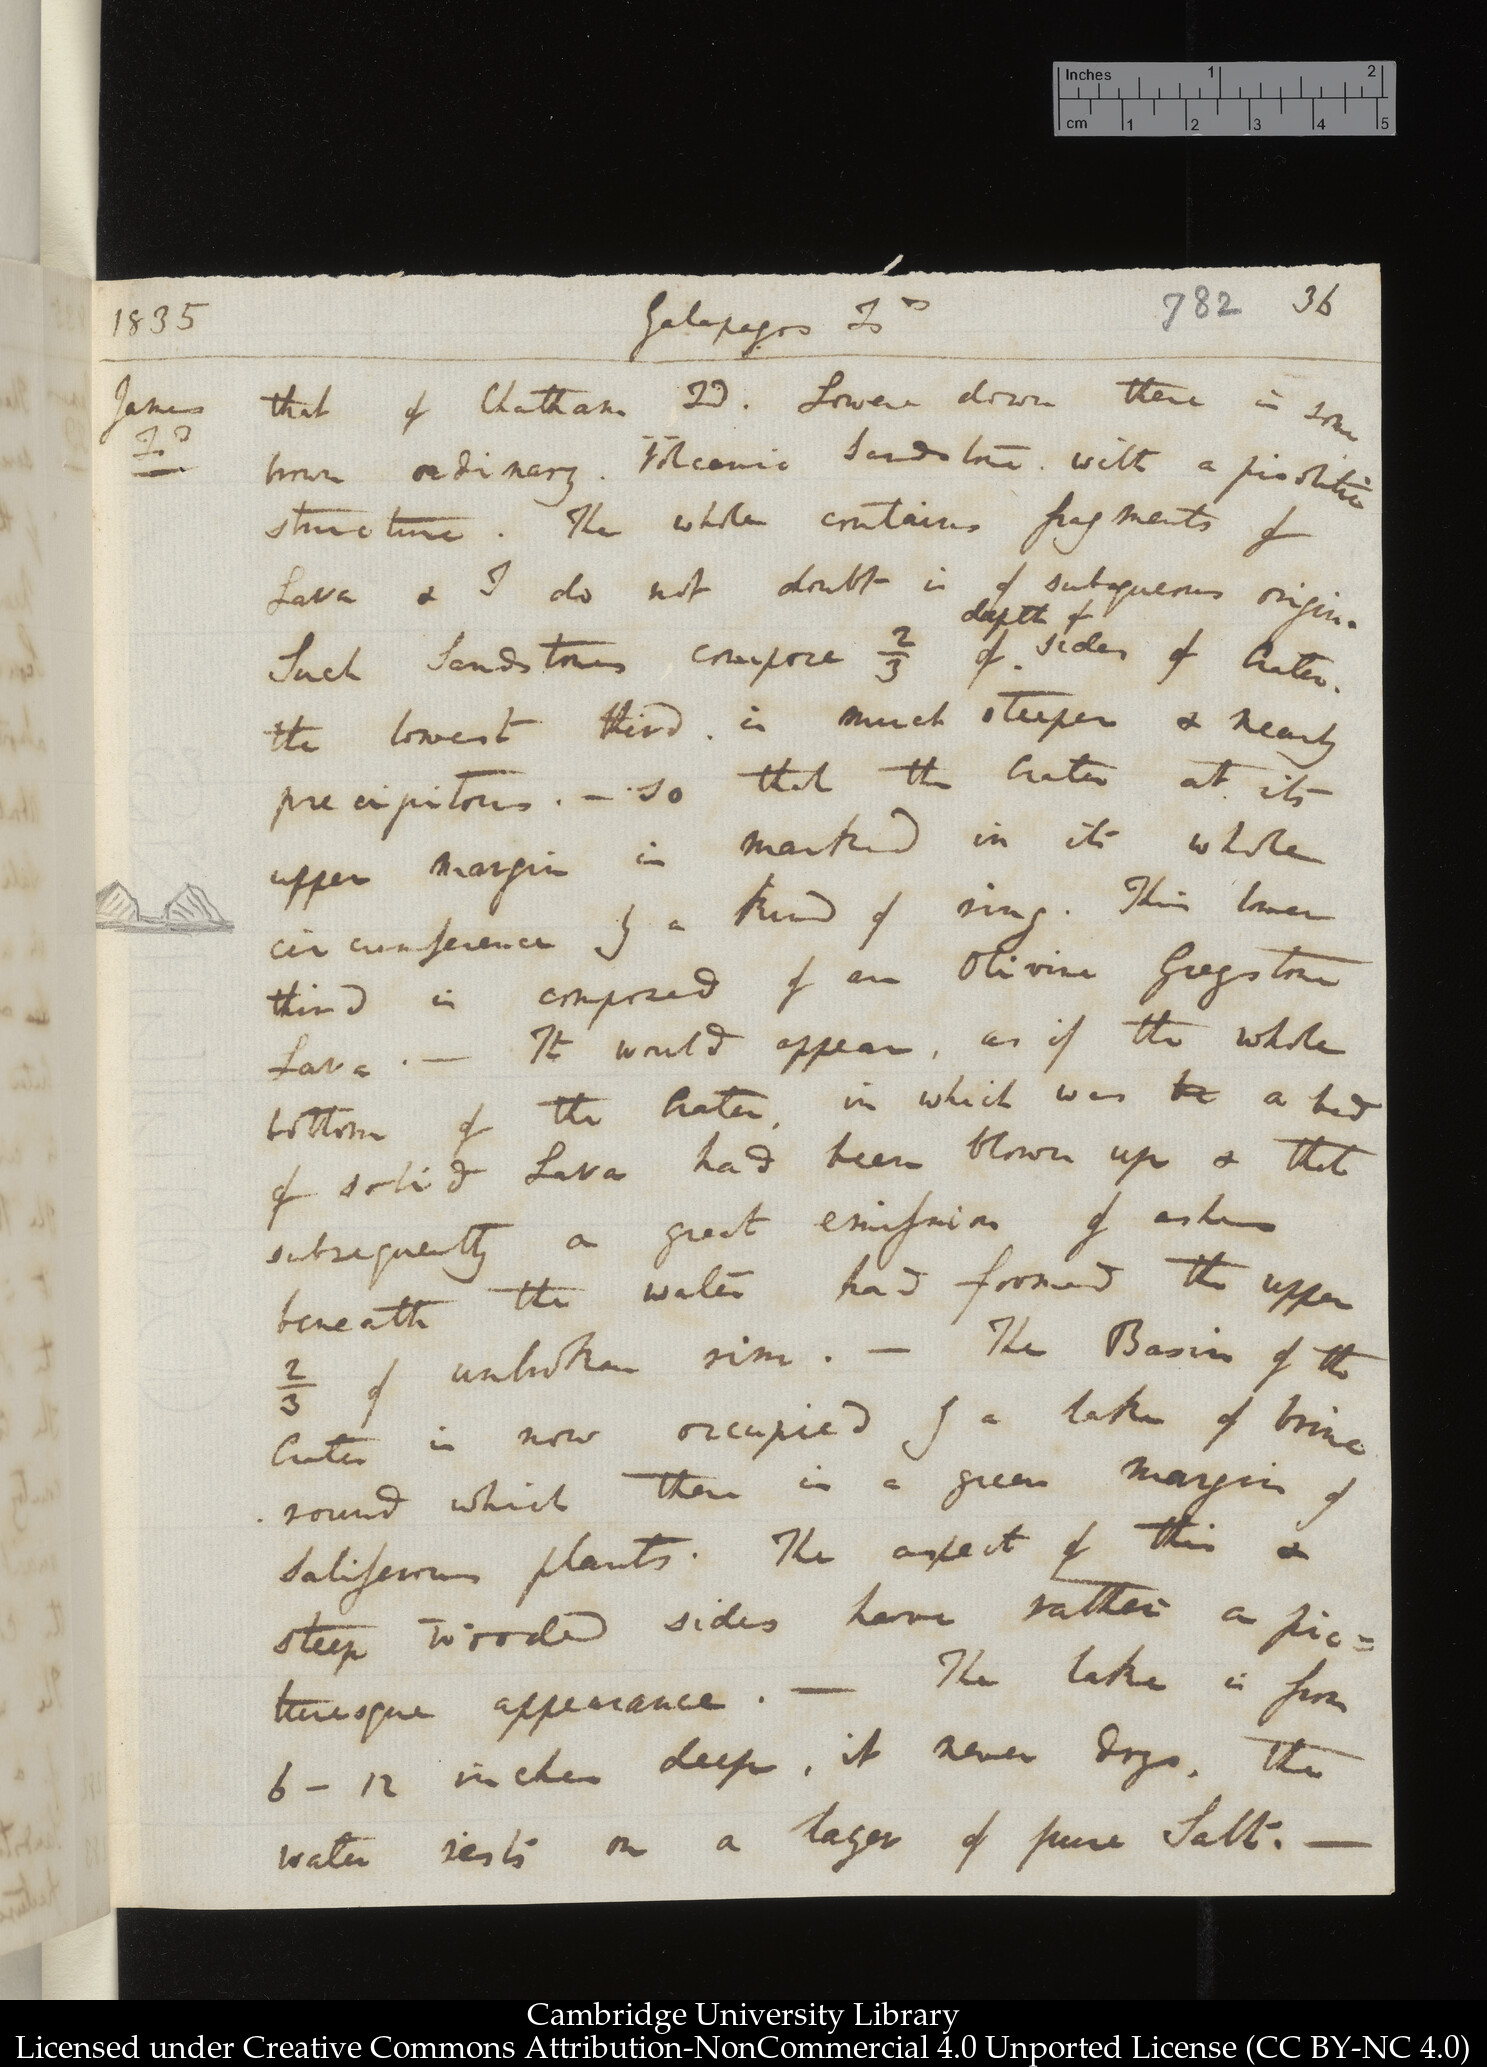 Inches 1 2
cm 1 2 3 4 5
1835 Galapagos Is 782 36
James
Id
that of Chatham Id. Lower down there is some
brown ordinary. Volcanic Sandstone. with a pisolitic
structure. The whole contains fragments of
Lava & I do not doubt is of subaqueous origin.
depth of
Such Sandstones compose 2/3 of sides of Crater.
the lowest third. is much steeper & nearly
precipitous. — so that the Crater at its
upper margin is marked in its whole
circumference by a kind of ring. This lower
third is composed of an Olivine Greystone
Lava. — It would appear, as if the whole
bottom of the Crater, in which was be a bed
of solid Lava had been blown up & that
subsequently a great emission of ashes
beneath the water had formed the upper
2/3 of unbroken rim. — The Basin of the
Crater is now occupied by a lake of brine
round which there is a green margin of
Saliferous plants. The aspect of this &
steep wooded sides have rather a pic=
turesque appearance. — The lake is from
6 – 12 inches deep, it never drys, the
water rests on a layer of pure Salt. —
Cambridge University Library
Licensed under Creative Commons Attribution-NonCommercial 4.0 Unported License (CC BY-NC 4.0)